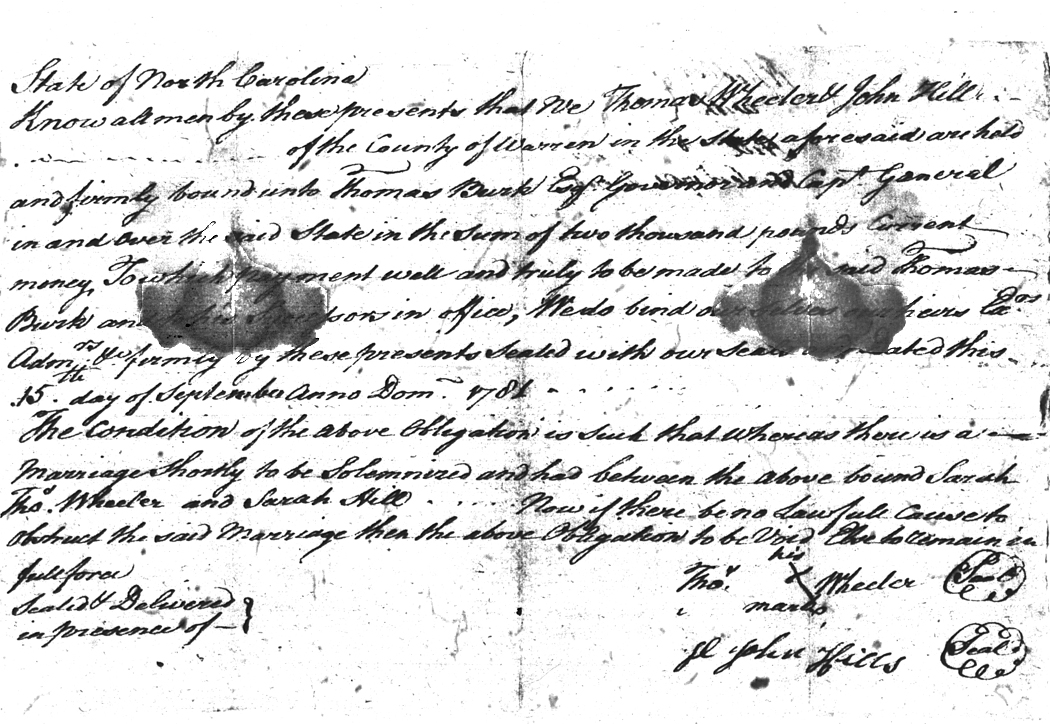 State of North Carolina
Know all men by these presents that We Thomas Wheeler & John Hill
of the County of Warren in the State aforesaid are held
and firmly bound unto Thomas Burk Esqr. Governor and Capt. General
in and over the said State in the Sum of two thousand pounds Current
money, To which payment well and truly to be made to the said Thomas
Burk and his in office, We do bind our selves our heirs Exors
Admrs. &c firmly by these presents Sealed with our Seals and dated this
15th. day of September Anno Dom. 1781
The Condition of the above Obligation is Such that Whereas there is a
Marriage Shortly to be Solemnized and had between the above bound Sarah
Tho. Wheeler and Sarah Hill Now if there be no Lawfull Cause to
obstruct the said Marriage then the above Obligation to be Void Else to remain in
full force
Sealed & Delivered
in presence of
his
Thos. X Wheeler Seal
mark
John Hills Seal